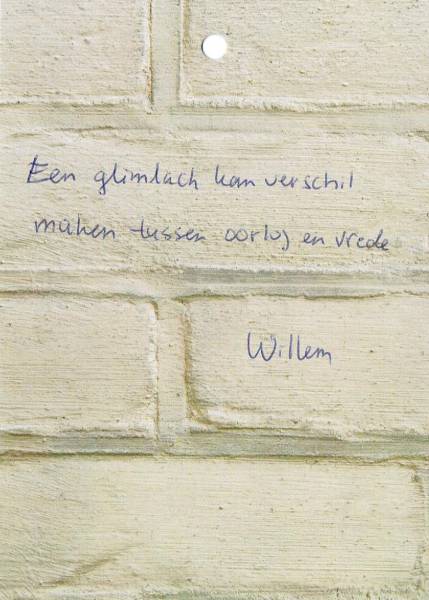 Een glimlach kan verschil
maken tussen oorlog en vrede
Willem